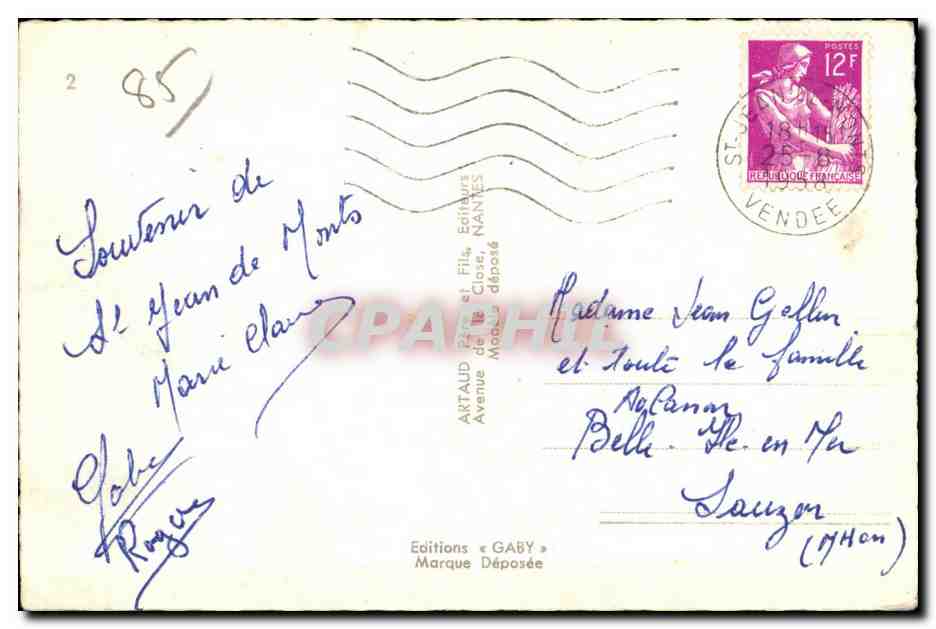 2
85
Souvenir de
St Jean de Monts
Marie Claire
Gaby
Roger
ARTAUD Père et Fils, Editeurs
Avenue de la Close, NANTES
Modèle déposé
Editions « GABY »
Marque Déposée
CPARAMA
POSTES
12F
REPUBLIQUE FRANÇAISE
ST-JEAN-DE-MONTS
18H
25-8
1958
VENDEE
Madame Jean
et toute la famille
Belle-Ile-en Mer
Sauzon
(MHan)